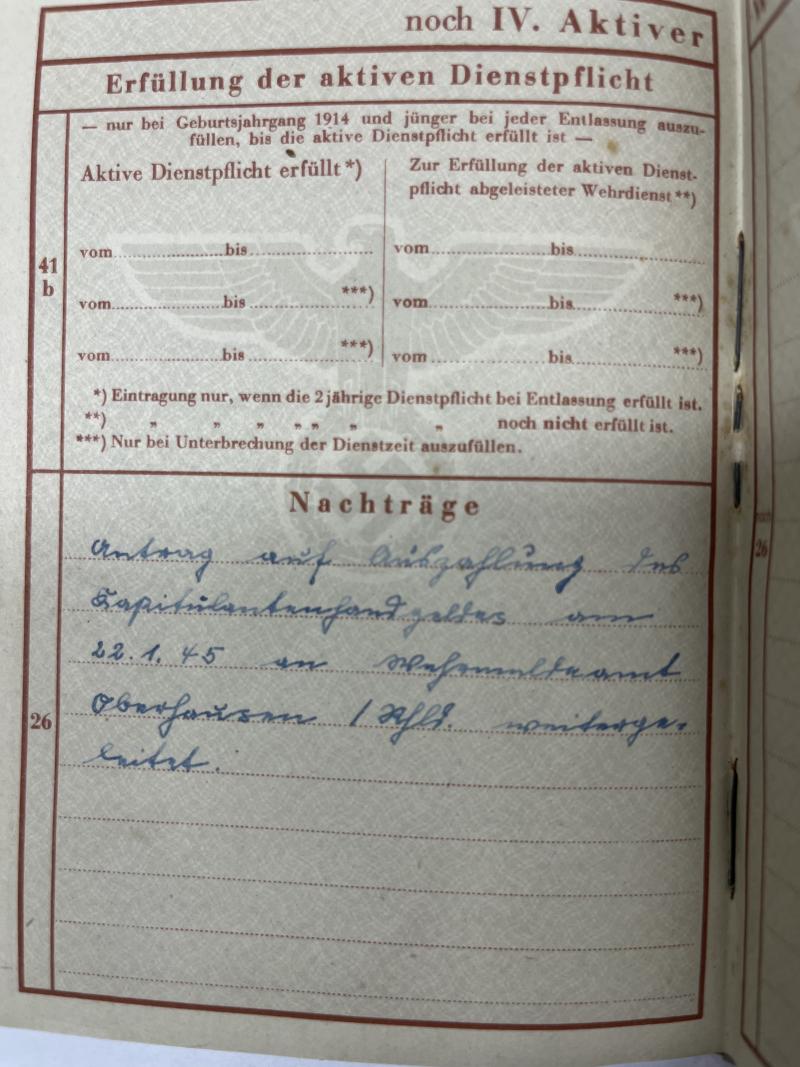 noch IV. Aktiver
Erfüllung der aktiven Dienstpflicht
— nur bei Geburtsjahrgang 1914 und jünger bei jeder Entlassung auszu-
füllen, bis die aktive Dienstpflicht erfüllt ist —
Aktive Dienstpflicht erfüllt *)
Zur Erfüllung der aktiven Dienst-
pflicht abgeleisteter Wehrdienst **)
41
b
vom bis
vom bis
vom bis ***)
vom bis ***)
vom bis ***)
vom bis ***)
*) Eintragung nur, wenn die 2 jährige Dienstpflicht bei Entlassung erfüllt ist.
**) „ „ „ „ „ „ „ noch nicht erfüllt ist.
***) Nur bei Unterbrechung der Dienstzeit auszufüllen.
Nachträge
26
Antrag auf Auszahlung des
Kapitulantenhandgeldes am
22.1.45 an Wehrmeldeamt
Oberhausen / Rhld. weiterge-
leitet.
26